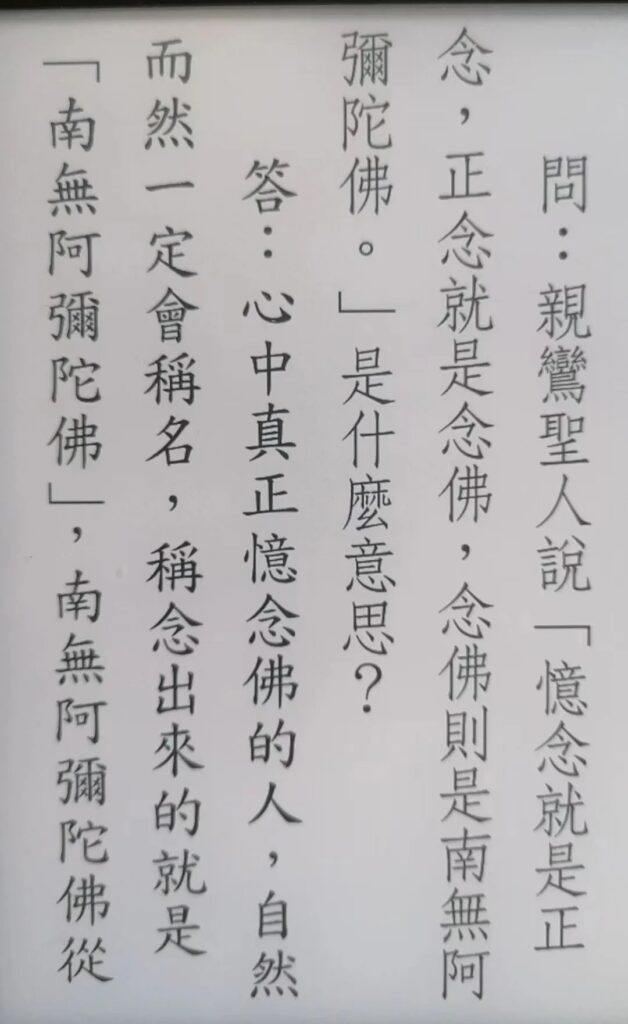 問：親鸞聖人說「憶念就是正
念，正念就是念佛，念佛則是南無阿
彌陀佛。」是什麼意思？
答：心中真正憶念佛的人，自然
而然一定會稱名，稱念出來的就是
「南無阿彌陀佛」，南無阿彌陀佛從